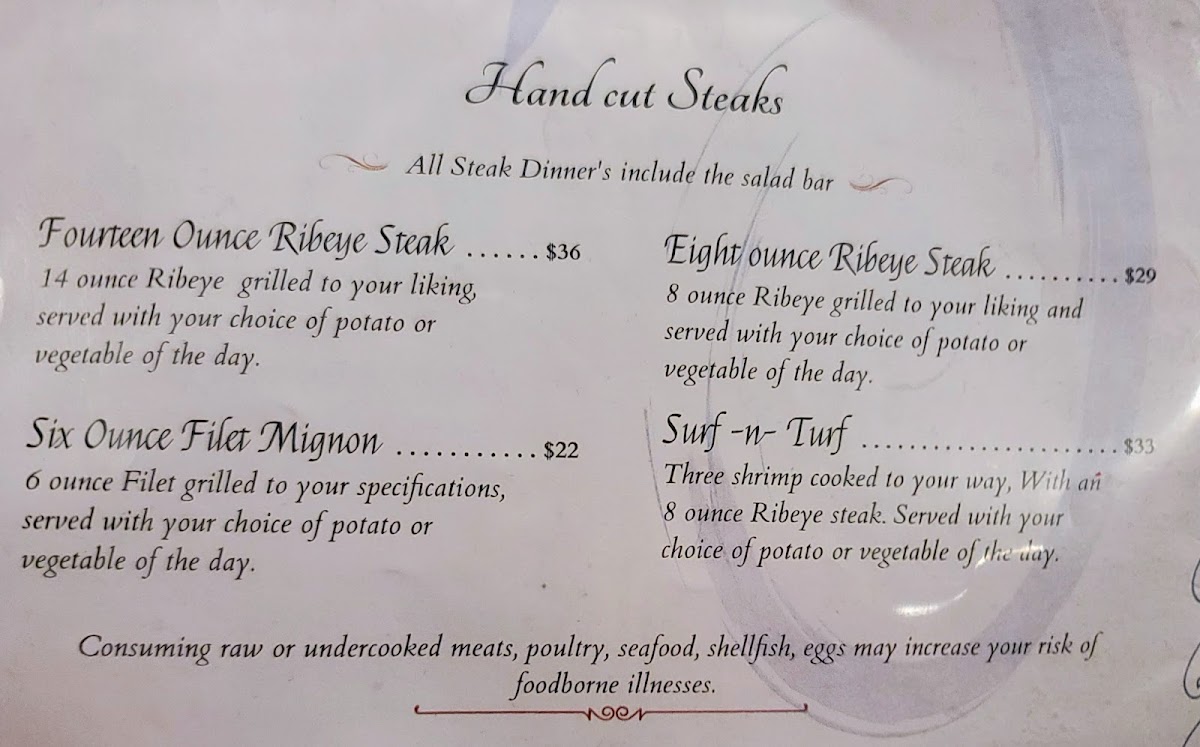 Hand cut Steaks
All Steak Dinner's include the salad bar
Fourteen Ounce Ribeye Steak ...... $36
14 ounce Ribeye grilled to your liking,
served with your choice of potato or
vegetable of the day.
Six Ounce Filet Mignon ........... $22
6 ounce Filet grilled to your specifications,
served with your choice of potato or
vegetable of the day.
Eight ounce Ribeye Steak .......... $29
8 ounce Ribeye grilled to your liking and
served with your choice of potato or
vegetable of the day.
Surf -n- Turf ....................... $33
Three shrimp cooked to your way, With an
8 ounce Ribeye steak. Served with your
choice of potato or vegetable of the day.
Consuming raw or undercooked meats, poultry, seafood, shellfish, eggs may increase your risk of
foodborne illnesses.